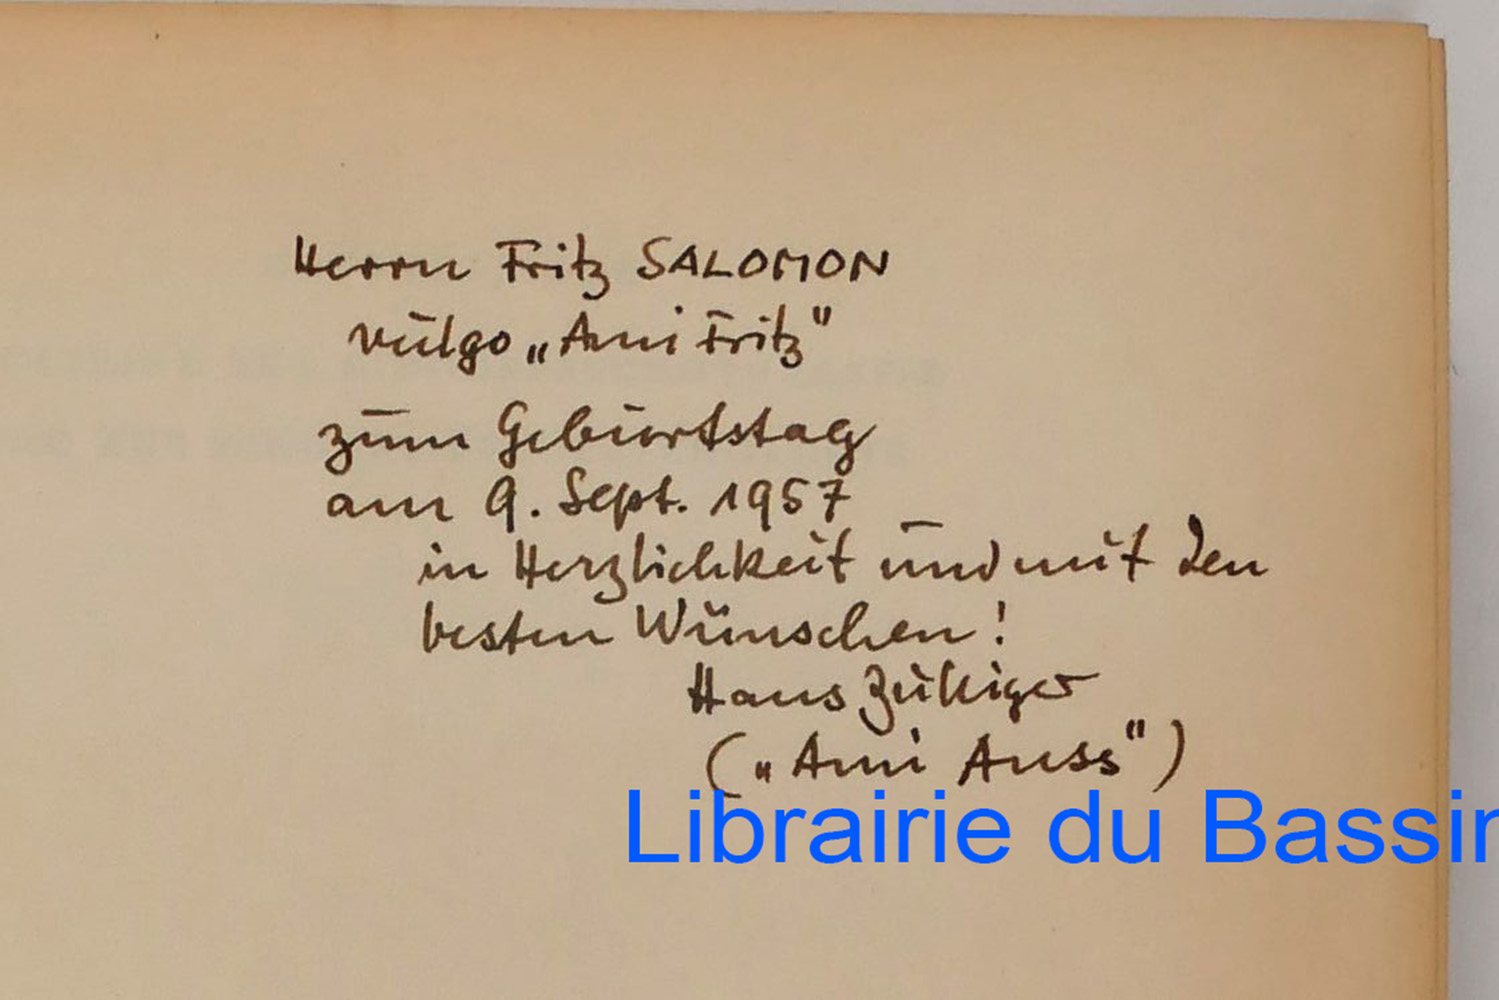 Herrn Fritz SALOMON
vulgo „Ami Fritz"
zum Geburtstag
am 9. Sept. 1957
in Herzlichkeit und mit den
besten Wünschen!
Hans Zulliger
(„Ami Auss")
Librairie du Bassin